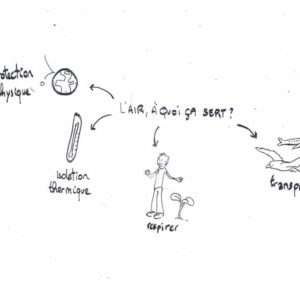 otection
hysique
L'AIR, À QUOI ÇA SERT ?
isolation
thermique
respirer
transp